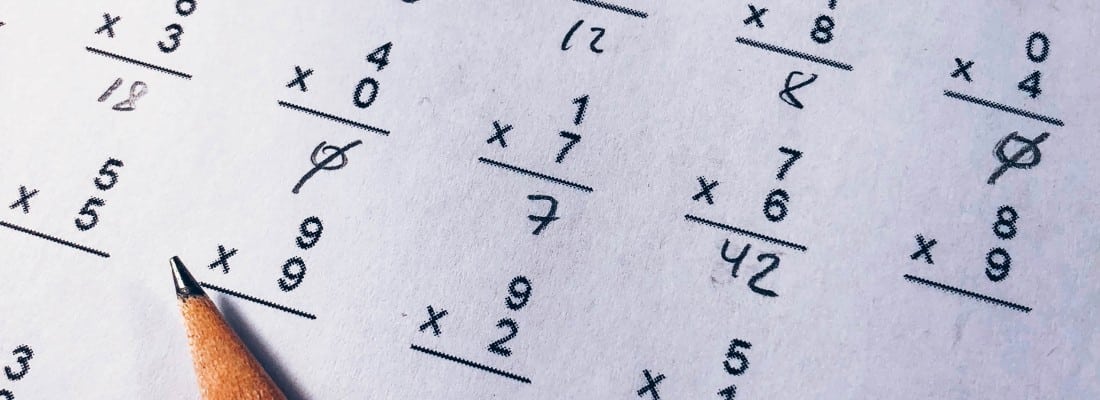 12
x 8
8
0
x 4
0
x 3
18
4
x 0
0
1
x 7
7
7
x 6
42
8
x 9
5
x 5
9
x 9
9
x 2
5
x
3